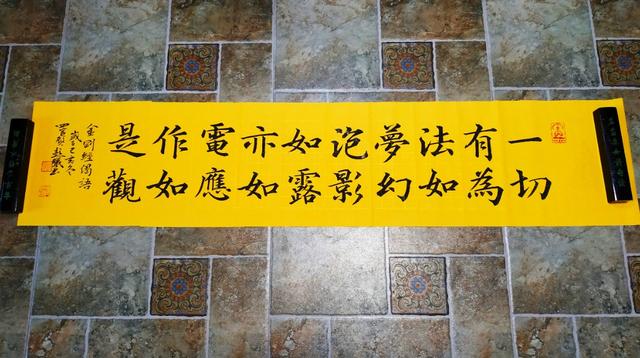 一切
有為
法如
夢幻
泡影
如露
亦如
電應
作如
是觀
金剛經偈語
歲在己亥冬